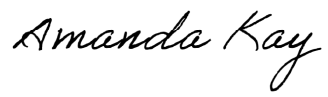 Amanda Kay